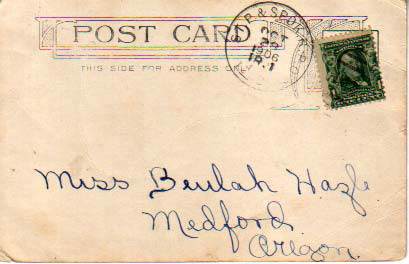 POST CARD
THIS SIDE FOR ADDRESS ONLY
OCT
1906
Miss Beulah Hazle
Medford
Oregon.